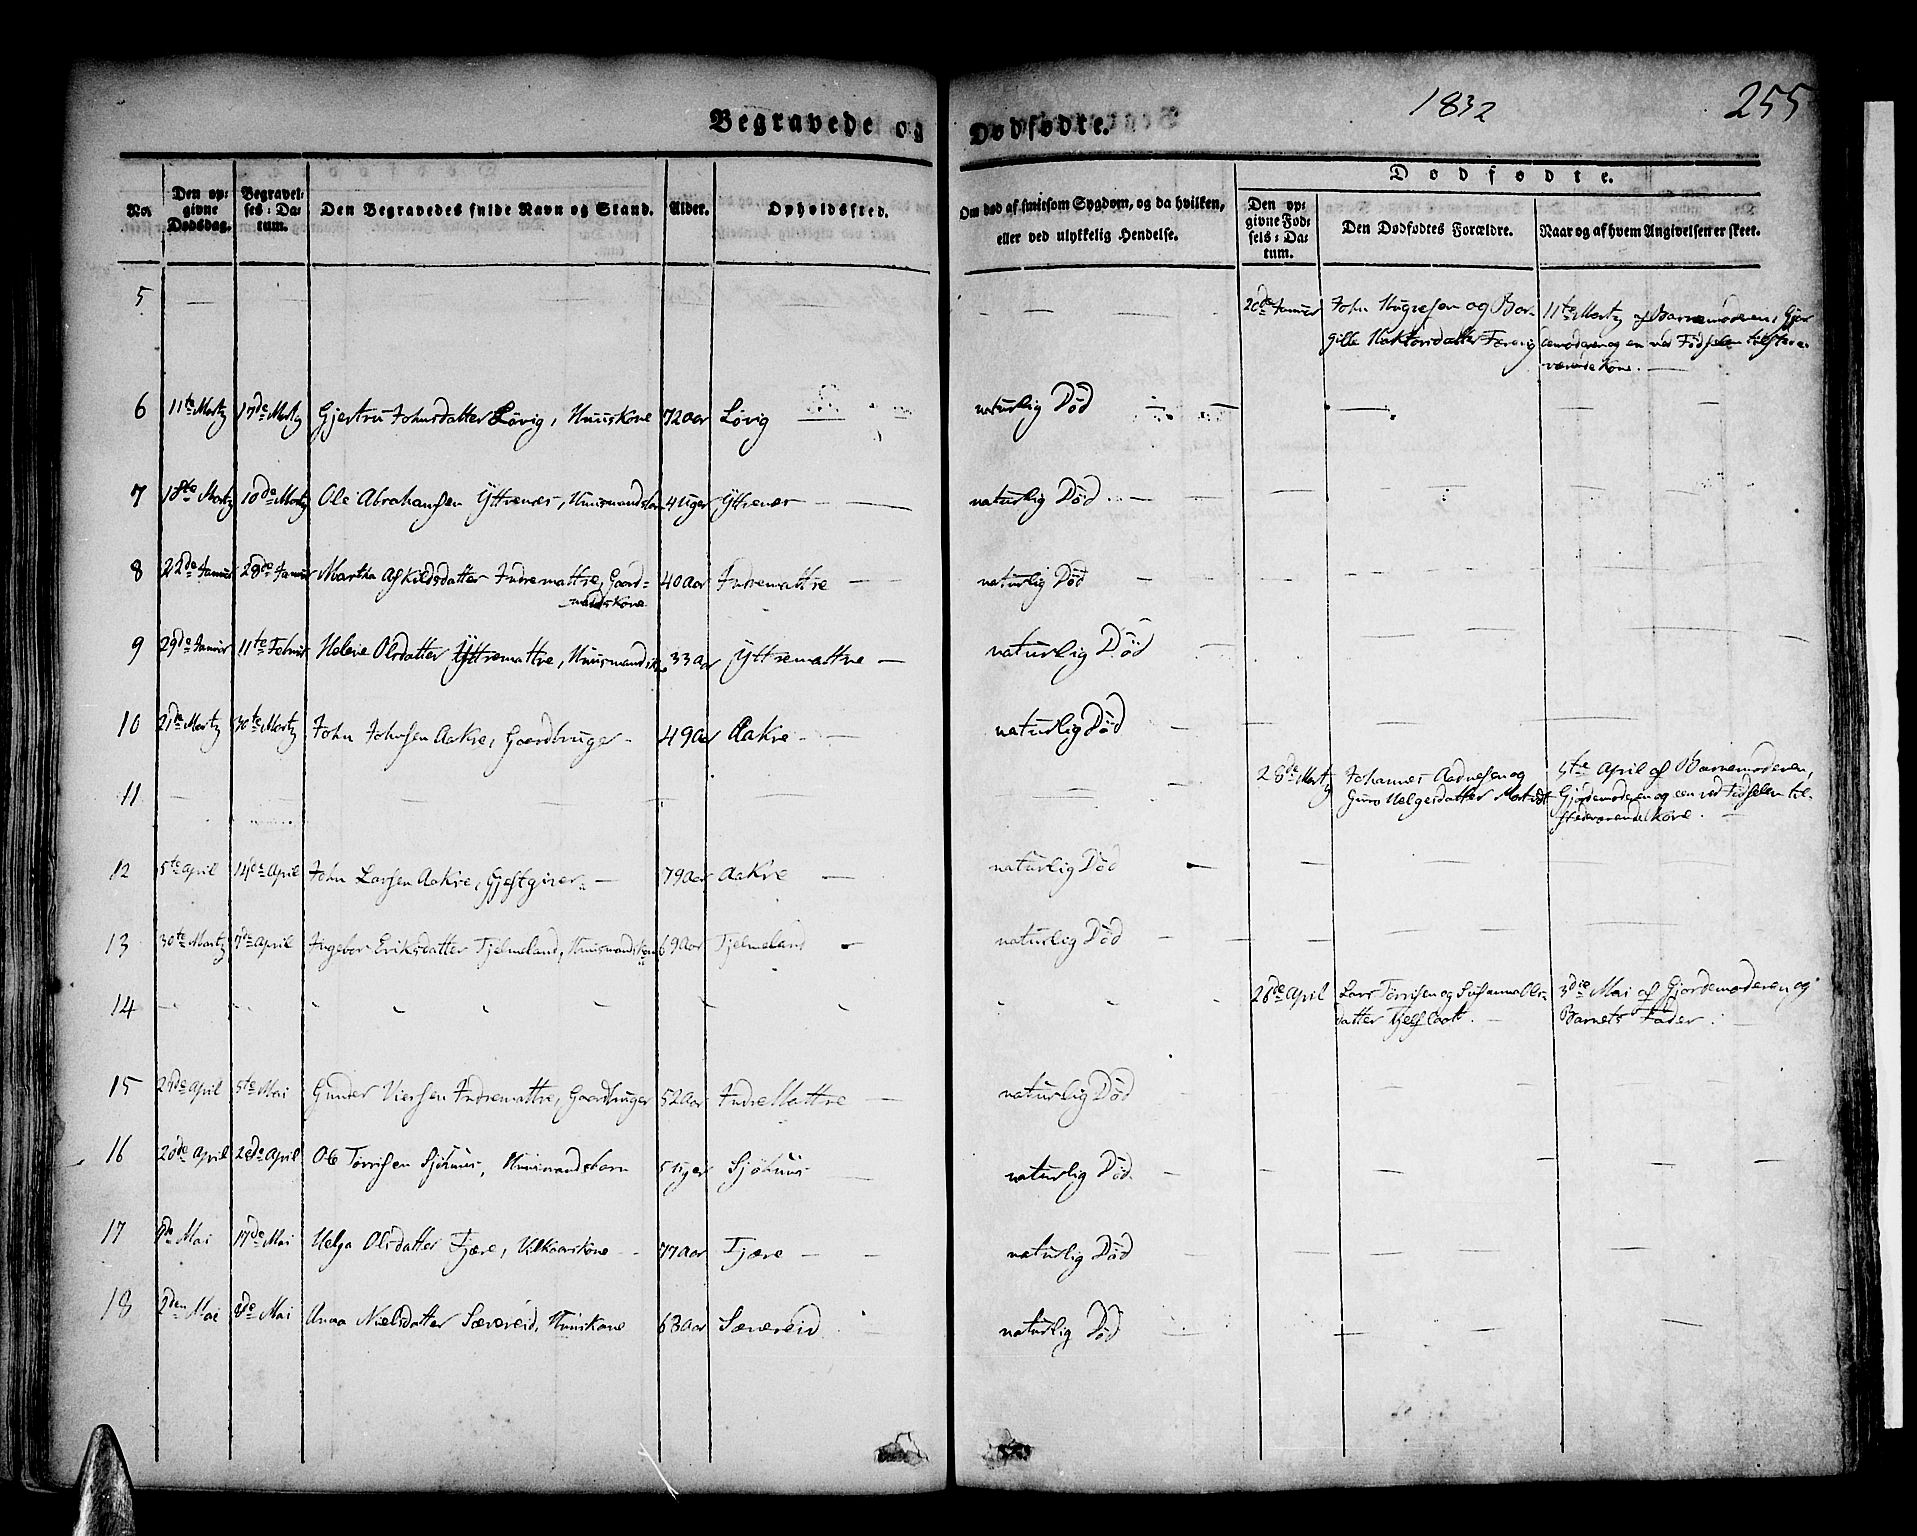 1832
255
Begravede og Dodfodte.
No.
Den opgivne Dodsdag.
Begravelses-Datum.
Den Begravedes fulde Navn og Stand.
Alder.
Opholdssted.
Om dod af smitsom Sygdom, og da hvilken, eller ved ulykkelig Hendelse.
Dodfodte.
Den opgivne Fodsels-Datum.
Den Dodfodtes Forældre.
Naar og af hvem Angivelsen er skeet.
5 — — — — 20de Januar John og Bor-
gille 11te Martz af Barnemoderen, Gjor-
demoderen og en ved Fødselen tilstede
værende Kone. —
6 11te Martz 17de Martz Gjertru Johnsdatter Løvig, Huuskone 72 Aar Løvig naturlig Død
7 18te Martz Martz Ole Abrahamsen Yttrenæs, Huusmandsbarn 4 Uger Yttrenæs naturlig Død
8 22de Januar 28de Januar Martha Askildsdatter Indremattre, Gaard-
mandskone 40 Aar Indremattre naturlig Død
9 29de Januar 11te Februar Helene Olsdatter Yttremattre, 33 Aar Yttremattre naturlig Død
10 21de Martz 30te Martz John Johnsen Aakre, Gaardbruger 49 Aar Aakre naturlig Død
11 — — — — 28de Martz Johannes Aadnesen og
Guro Helgesdatter 5te April af Barnemoderen,
Gjordemoderen og een ved Fødselen til-
stedeværende Kone.
12 5te April 14de April John Larsen Aakre, Gjestgiver 79 Aar Aakre naturlig Død
13 30te Martz 7de April Ingebor Eriksdatter Tjelmeland, Huusmandskone 69 Aar Tjelmeland naturlig Død
14 26de April Lars Tørrisen og
datter 3die Mai af Gjordemoderen og
Barnets Fader.
15 April 5te Mai Gunder Viersen Indremattre, Gaardbruger 52 Aar Indre Mattre naturlig Død
16 20de April April Ole Tørrisen Sjøhuus, Huusmandsbarn 5 Uger Sjøhuus naturlig Død
17 Mai 17de Mai Helga Olsdatter Fjære, Vilkaarskone 77 Aar Fjære naturlig Død
18 2den Mai 8de Mai Anna Nielsdatter Sævereid, Huuskone 63 Aar Sævereid naturlig Død